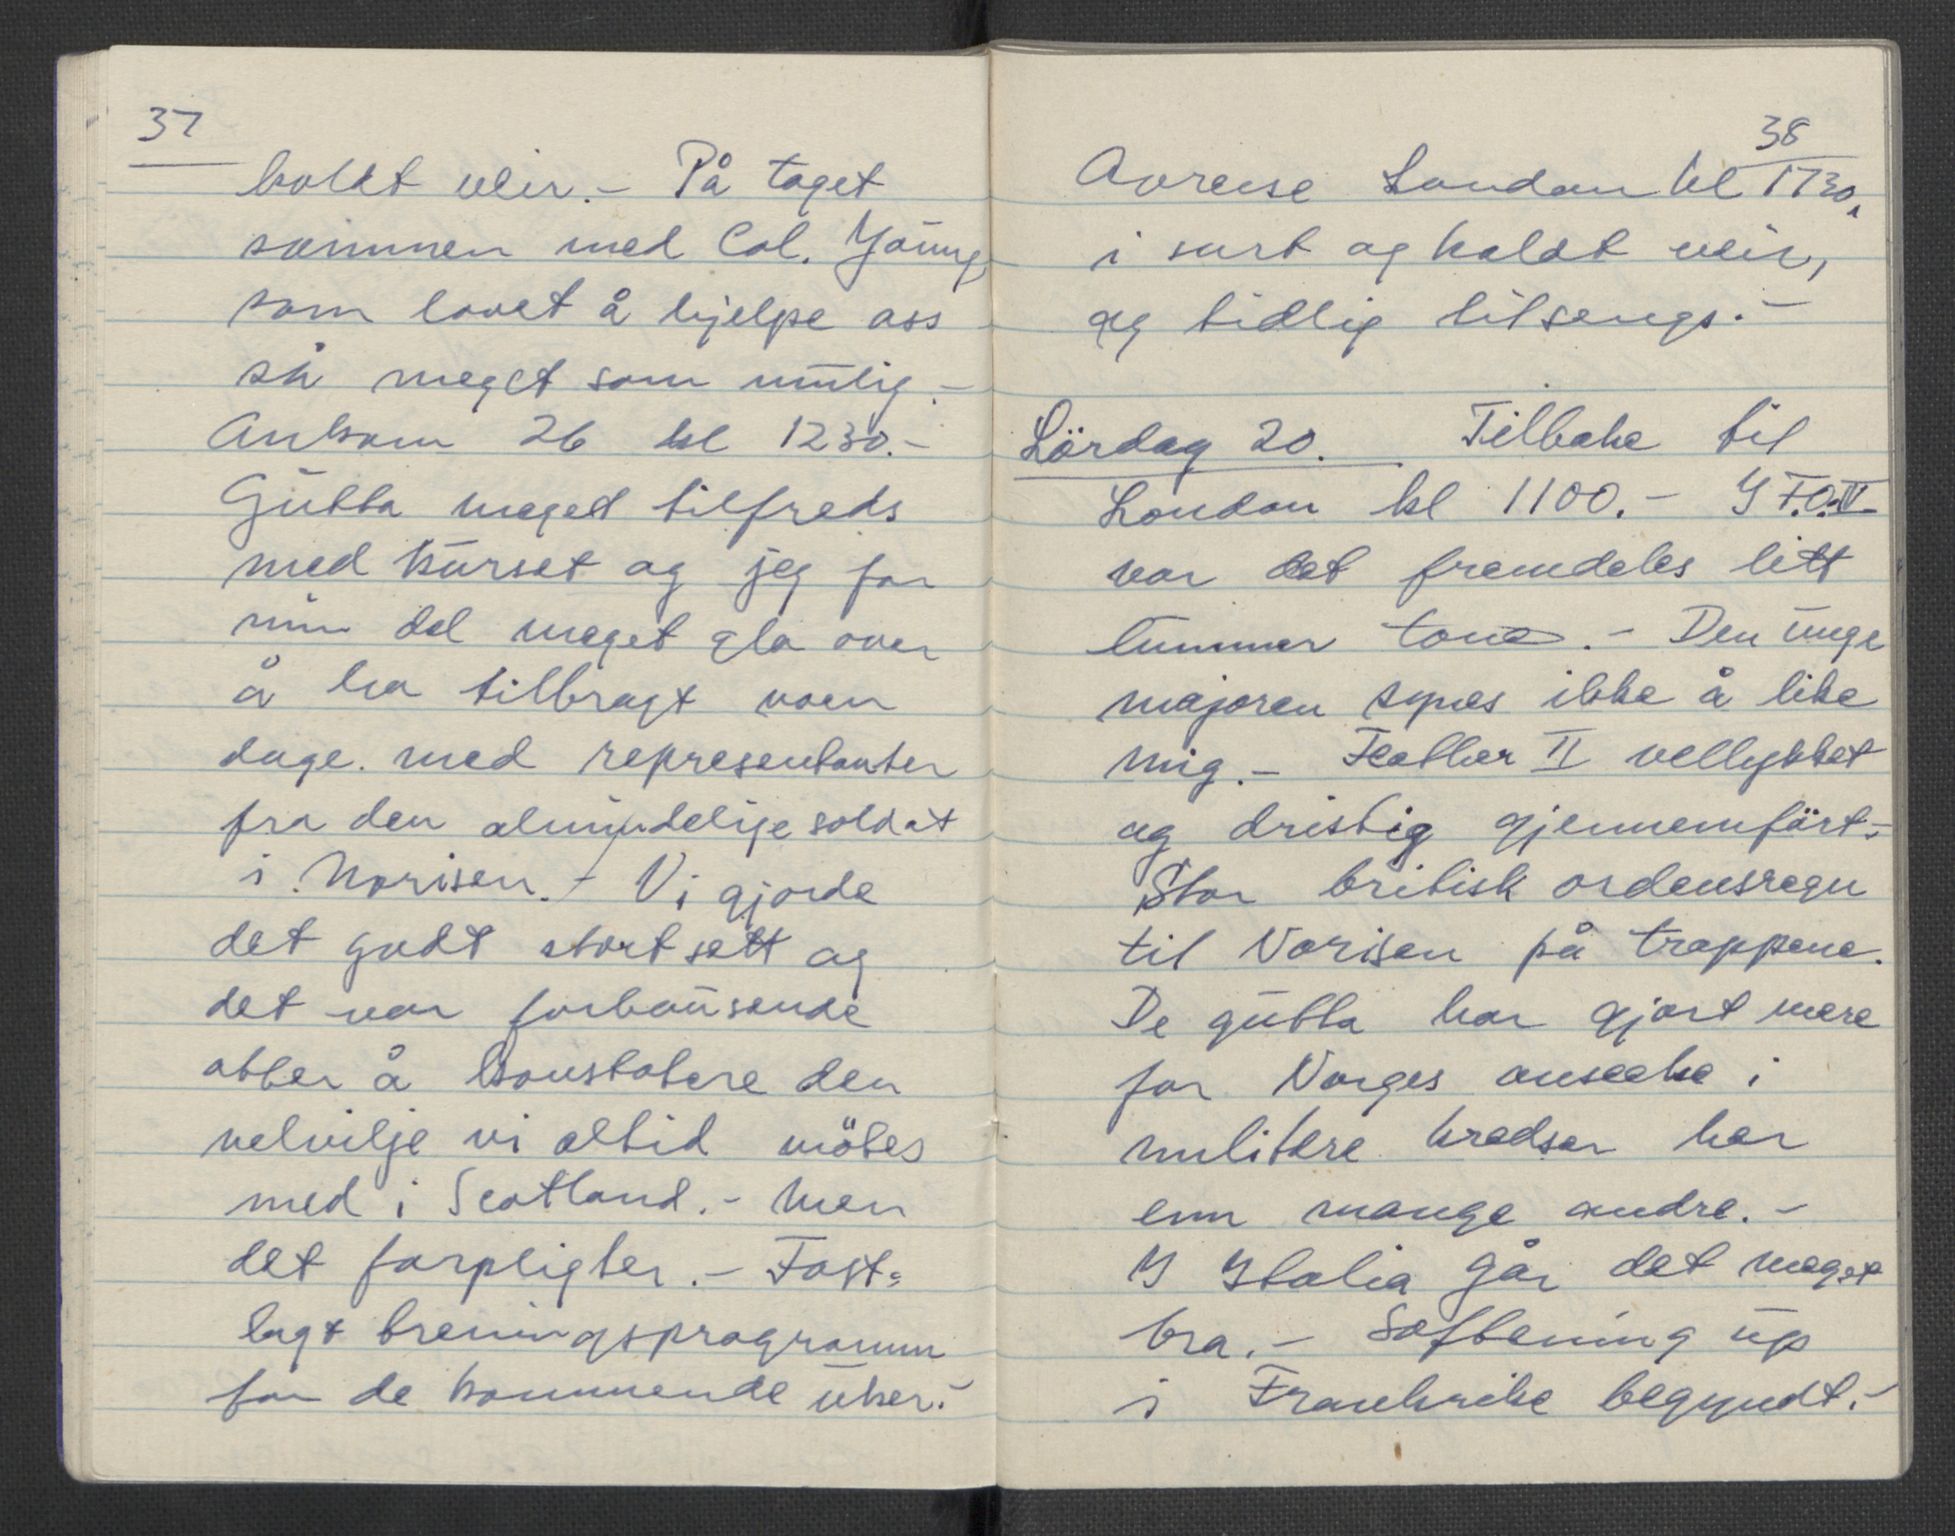 37
koldt veir. - På toget
sammen med Col. Young
som lovet å hjelpe oss
så meget som mulig. -
Ankom 26 kl 1230. -
Gutta meget tilfreds
med kurset og jeg for
min del meget gla over
å ha tilbragt noen
dage. med representanter
fra den almindelige soldat
i Norisen. - Vi gjorde
det godt stort sett og
det var forbausende
atter å konstatere den
velvilje vi altid mötes
med i Scotland. - Men
det forpligter. - Fast=
lagt treningsprogramm
for de kommende uker. -
38
Avreise London kl 1730,
i surt og koldt veir,
og tidlig tilsengs. -
Lördag 20. Tilbake til
London kl 1100. - I F.O. IV
var det fremdeles litt
lummer tone. - Den unge
majoren synes ikke å like
mig. - Feather II vellykket
og dristig gjennemfört. -
Stor britisk ordensregn
til Norisen på trappene.
De gutta har gjort mere
for Norges anseelse i
militære kredser her
enn mange andre. -
I Italia går det meget
bra. - Softening up
i Frankrike begyndt. -